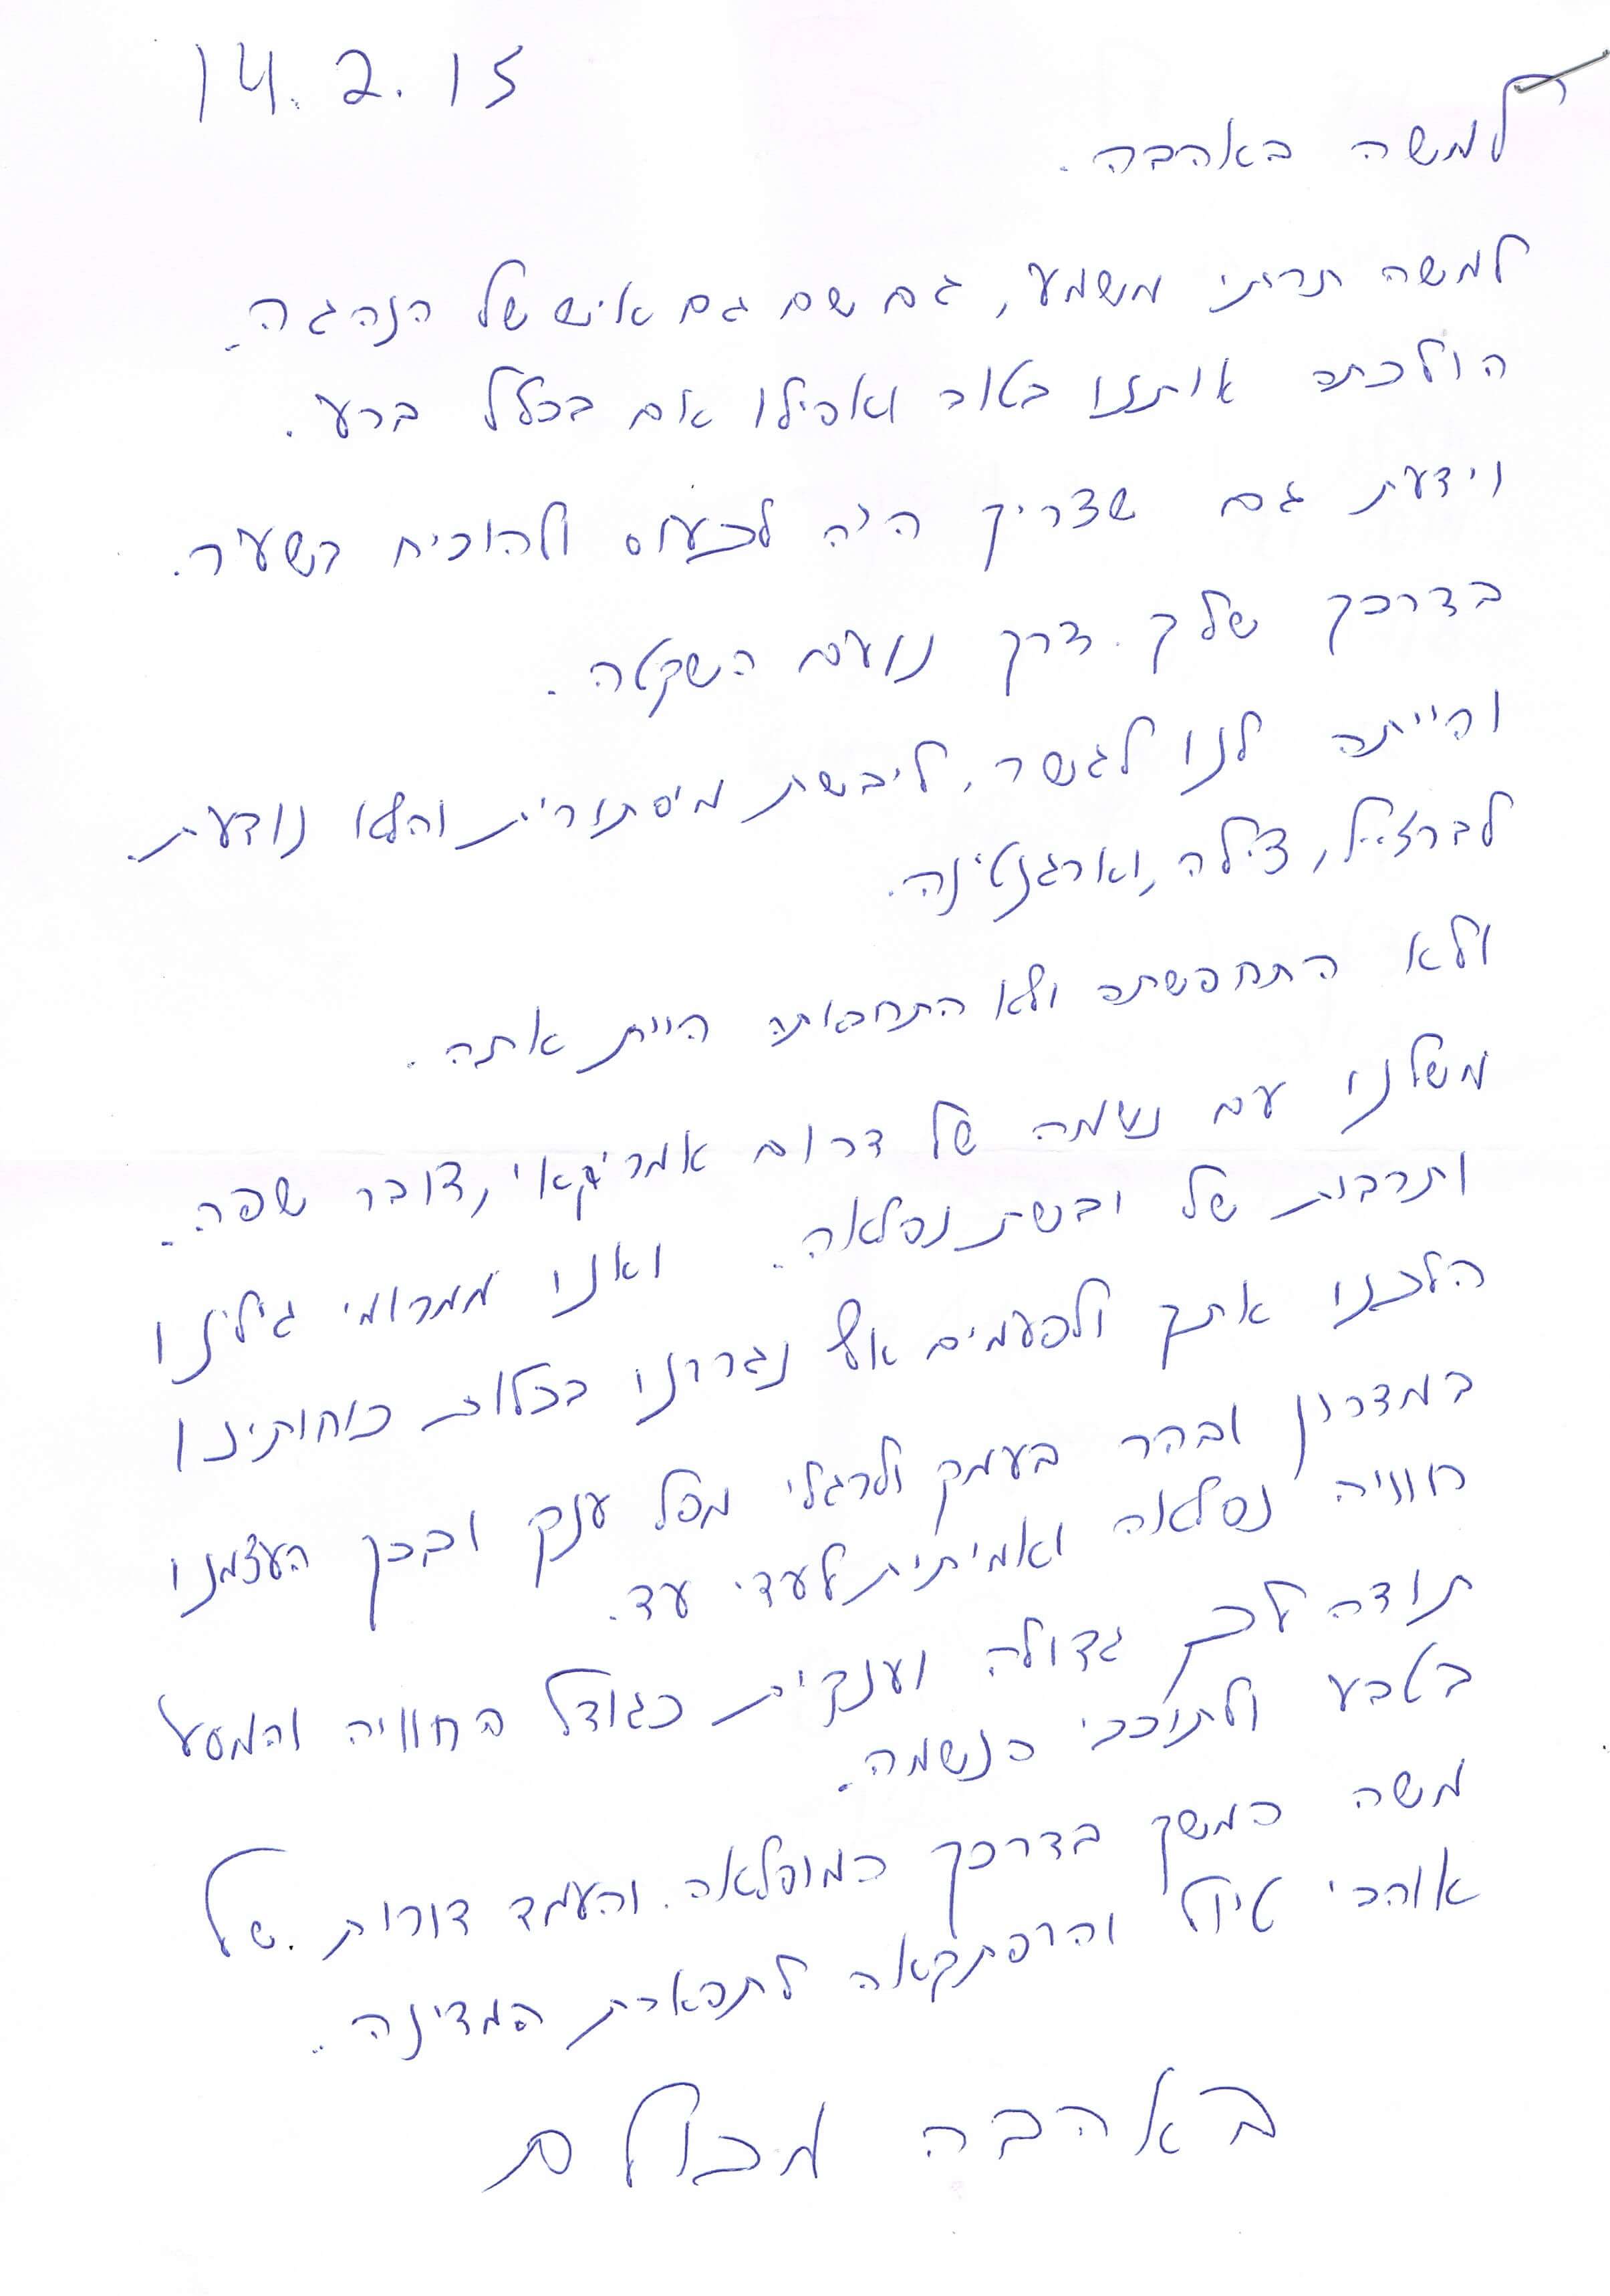 14.2.15
למשה באהבה.
למשה תרתי משמע, גם שם גם איש של הנהגה.
הולכתה אותנו בטוב ואפילו אם בכלל ברע.
וידעת גם שצריך היה לכעוס ולהוכיח בשער.
בדרכך שלך. דרך נועם השקטה.
והייתה לנו לגשר, ליבשת מיסתורית והלא נודעת.
לברזיל, צ'ילה, וארגנטינה.
ולא התחפשתה ולא התחבאתה היית אתה.
משלנו עם נשמה של דרום אמריקאי, דובר שפה.
ותרבות של יבשת נפלאה. ואנו ממרומי גילינו
הלכנו אתך ולפעמים אף נגררנו בכלות כוחותינו
במדרון ובהר בעמק ולרגלי מפל ענק ובכך העצמנו
חוויה נפלאה ואמיתית לעדי עד.
תודה לך גדולה וענקית כגודל החוויה והמסע
בטבע ולתוככי הנשמה.
משה המשך בדרכך המופלאה. והעמד דורות של
אוהבי טיול והרפתקאה לתפארת המדינה.
באהבה מכולם